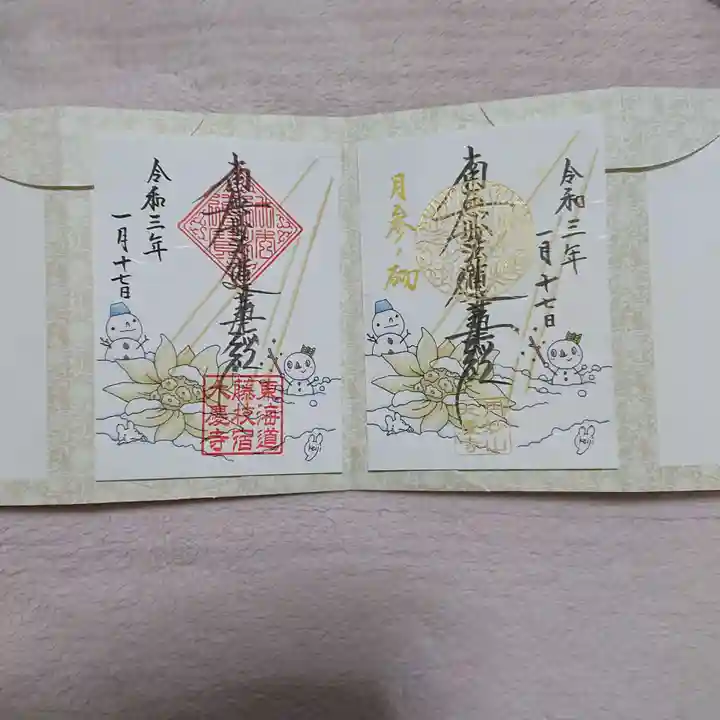 令和三年
一月十七日
南無妙法蓮華経
東海道
藤枝宿
大慶寺
keiji
令和三年
一月十七日
南無妙法蓮華経
月参り
keiji